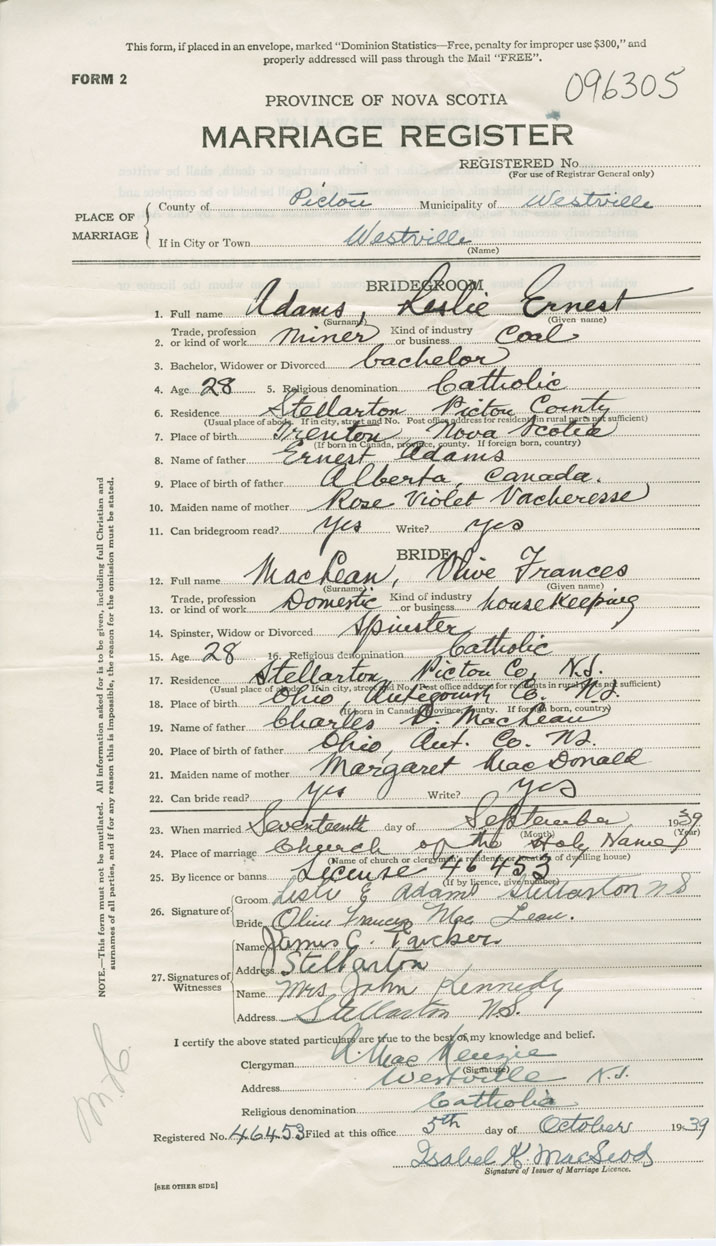 This form, if placed in an envelope, marked "Dominion Statistics—Free, penalty for improper use $300," and
properly addressed will pass through the Mail "FREE".
FORM 2
096305
PROVINCE OF NOVA SCOTIA
MARRIAGE REGISTER
REGISTERED No.
(For use of Registrar General only)
PLACE OF MARRIAGE
County of Pictou Municipality of Westville
If in City or Town Westville
(Name)
BRIDEGROOM
1. Full name Adams, Leslie Ernest
(Surname) (Given name)
2. Trade, profession or kind of work miner Kind of industry or business Coal
3. Bachelor, Widower or Divorced bachelor
4. Age 28 5. Religious denomination Catholic
6. Residence Stellarton Pictou County
(Usual place of abode. If in city, street and No. Post office address for residents in rural parts not sufficient)
7. Place of birth Trenton Nova Scotia
(If born in Canada, province, county. If foreign born, country)
8. Name of father Ernest Adams
9. Place of birth of father Alberta, Canada.
10. Maiden name of mother Rose Violet Vacheresse
11. Can bridegroom read? yes Write? yes
BRIDE
12. Full name MacLean, Olive Frances
(Surname) (Given name)
13. Trade, profession or kind of work Domestic Kind of industry or business housekeeping
14. Spinster, Widow or Divorced Spinster
15. Age 28 16. Religious denomination Catholic
17. Residence Stellarton Pictou Co. N.S.
(Usual place of abode. If in city, street and No. Post office address for residents in rural parts not sufficient)
18. Place of birth Ohio Antigonish Co. N.S.
(If born in Canada, province, county. If foreign born, country)
19. Name of father Charles D. MacLean
20. Place of birth of father Ohio, Ant. Co. NS.
21. Maiden name of mother Margaret MacDonald
22. Can bride read? yes Write? yes
23. When married Seventeenth day of September 1939
(Month) (Year)
24. Place of marriage Church of the Holy Name
(Name of church or clergyman's residence or location of dwelling house)
25. By licence or banns License 46453
(If by licence, give number)
26. Signature of
Groom Leslie E Adams Stellarton NS
Bride Olive Frances Mac Lean.
27. Signatures of Witnesses
Name James C. Tucker
Address Stellarton
Name Mrs John Kennedy
Address Stellarton N.S.
I certify the above stated particulars are true to the best of my knowledge and belief.
Clergyman A. MacKenzie
(Signature)
Address Westville N.S.
Religious denomination Catholic
Registered No. 46453 Filed at this office 5th day of October 1939
Isabel K. MacLeod
Signature of Issuer of Marriage Licence.
[SEE OTHER SIDE]
NOTE.—This form must not be mutilated. All information asked for is to be given, including full Christian and
surnames of all parties, and if for any reason this is impossible, the reason for the omission must be stated.